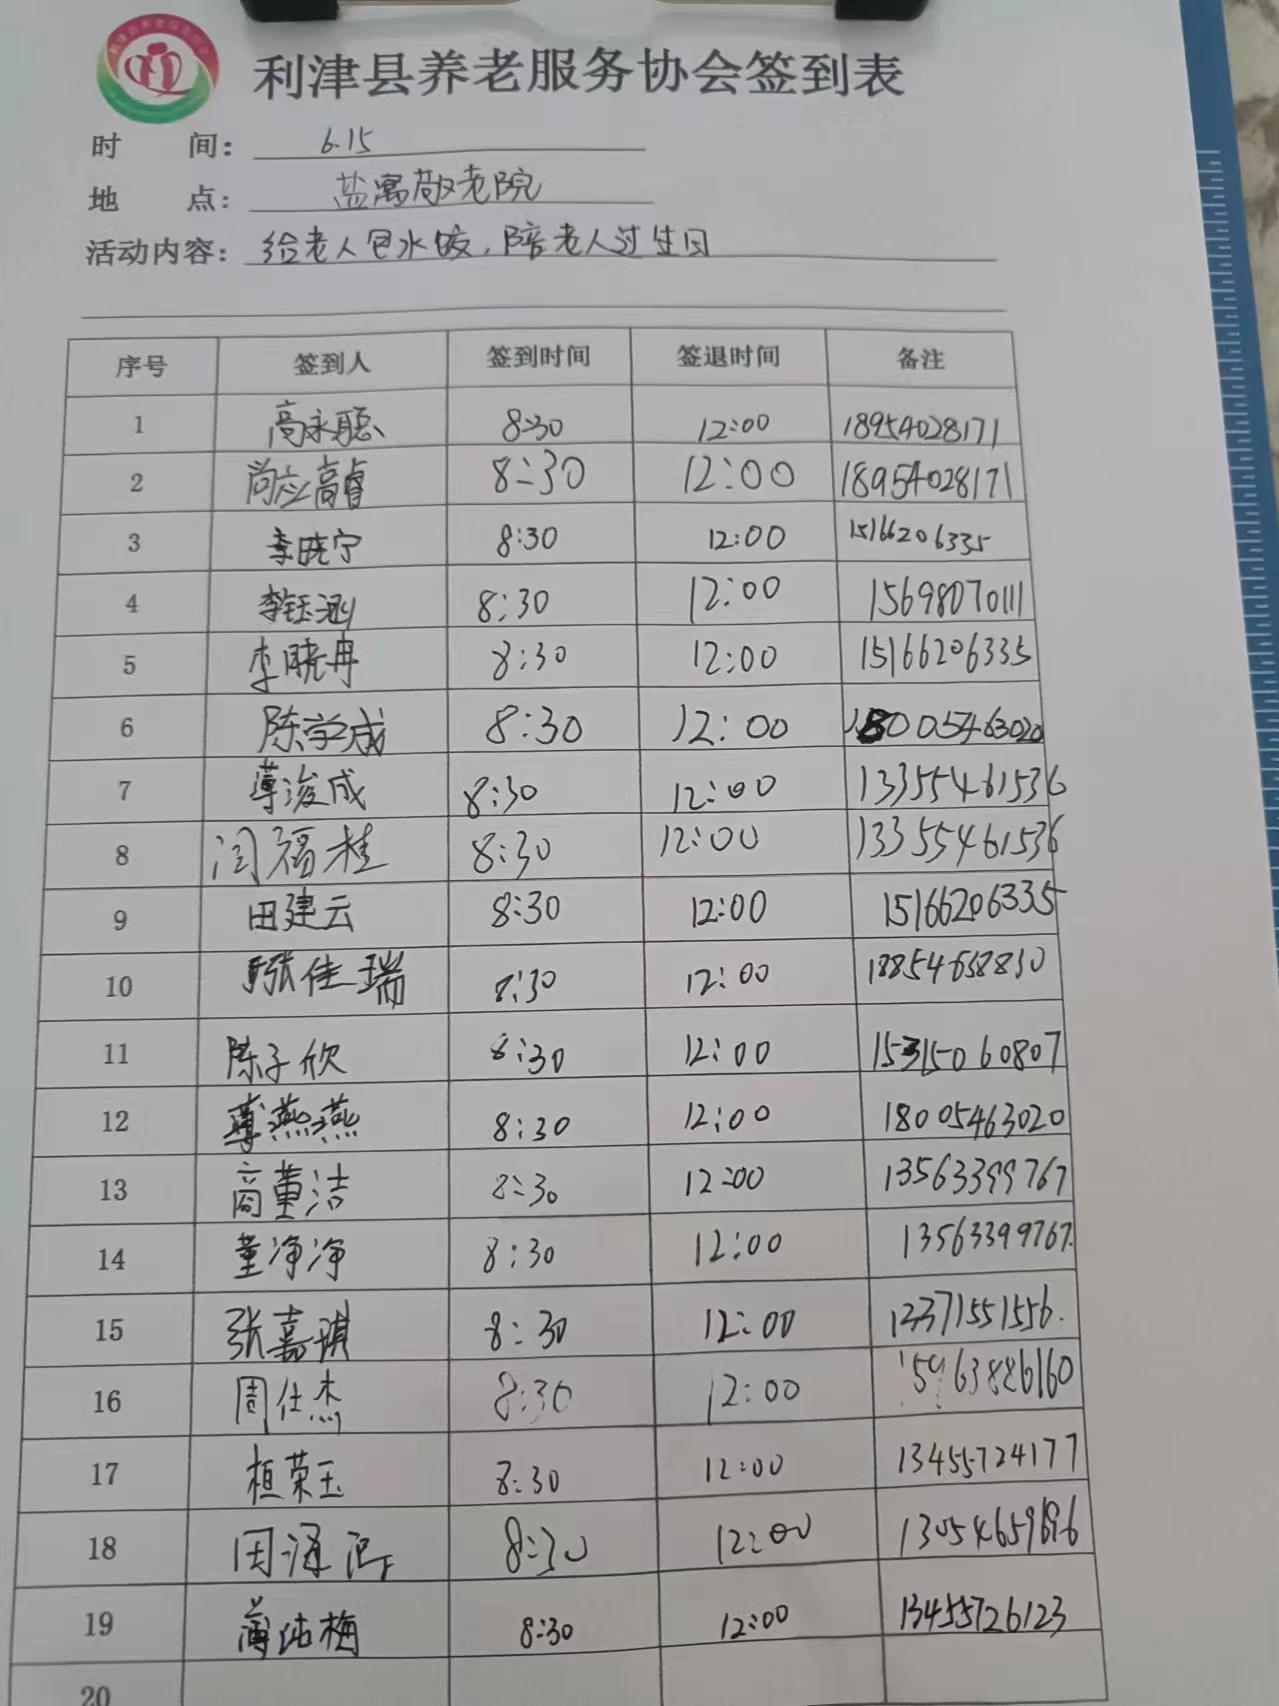 利津县养老服务协会签到表
时 间： 6.15
地 点： 盐窝敬老院
活动内容： 给老人包水饺，陪老人过生日
序号 签到人 签到时间 签退时间 备注
1 高永聪 8:30 12:00 18954028171
2 尚应高睿 8:30 12:00 18954028171
3 李晓宁 8:30 12:00 15166206335
4 李钰涵 8:30 12:00 15698070111
5 李晓冉 8:30 12:00 15166206335
6 陈学成 8:30 12:00 18005463020
7 薄浚成 8:30 12:00 13355461536
8 闫福桂 8:30 12:00 13355461536
9 田建云 8:30 12:00 15166206335
10 张佳瑞 8:30 12:00 18854658830
11 陈子欣 8:30 12:00 15315060807
12 薄燕燕 8:30 12:00 18005463020
13 商董洁 8:30 12:00 13563399767
14 董净净 8:30 12:00 13563399767.
15 张嘉琪 8:30 12:00
16 周仕杰 8:30 12:00 15963886160
17 桓荣玉 8:30 12:00 13455724177
18 8:30 12:00
19 8:30 12:00 13455726123
20